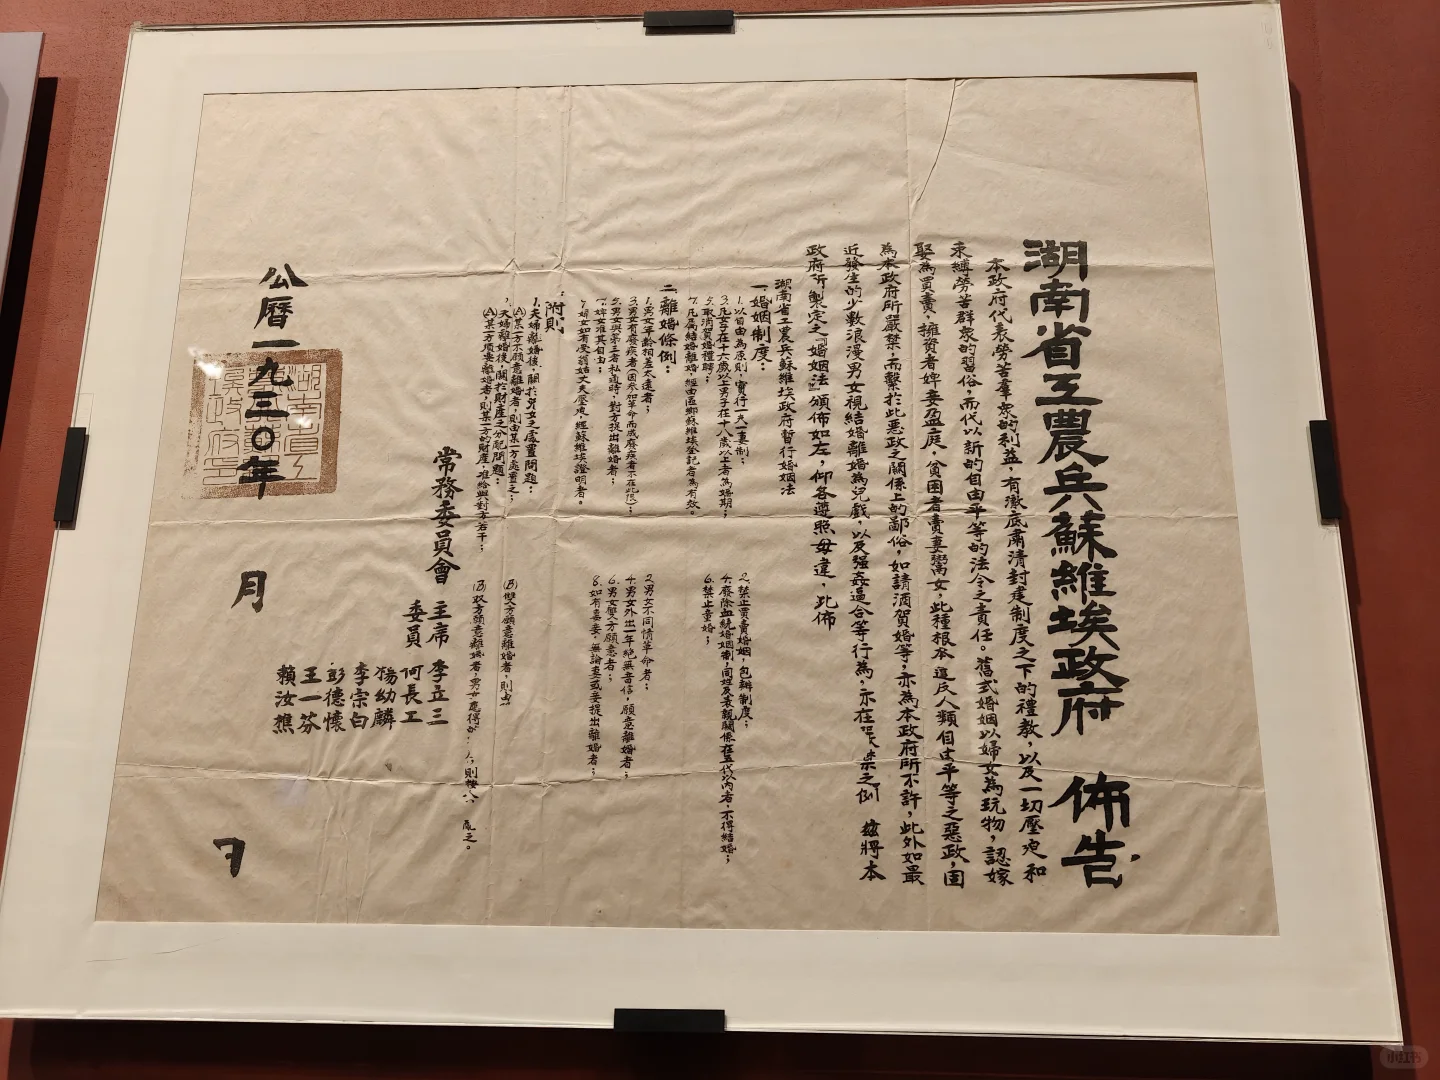 湖南省工農兵蘇維埃政府 佈告
本政府代表勞苦羣衆的利益，有澈底肅清封建制度之下的禮教，以及一切壓迫和
束縛勞苦群衆的習俗，而代以新的自由平等的法令之責任。舊式婚姻以婦女為玩物，認嫁
娶為買賣，擁資者婢妾盈庭，貧困者賣妻鬻女，此種根本違反人類自由平等之惡政，固
為本政府所嚴禁，而繫於此惡政之關係上的鄙俗，如請酒賀婚等，亦為本政府所不許，此外如最
近發生的少數浪漫男女視結婚離婚為兒戲，以及强姦逼合等行為，亦在嚴禁之例 茲將本
政府所製定之『婚姻法』頒佈如左，仰各遵照毋違，此佈
湖南省工農兵蘇維埃政府暫行婚姻法
一、婚姻制度：
1. 以自由為原則，實行一夫一妻制；
2. 禁止買賣婚姻，包辦制度；
3. 凡女子在十六歲以上男子在十八歲以上者為婚期；
4. 廢除血統婚姻制，同姓及表親關係在五代以內者，不得結婚；
5. 取消賀婚禮聘；
6. 禁止童婚；
7. 凡屬結婚離婚，經由區鄉蘇維埃登記者為有效。
二、離婚條例：
1. 男女年齡相差太遠者；
2. 男女不同情革命者；
3. 男女有廢疾者（因參加革命而成廢疾者不在此限）；
4. 男女外出一年絕無音信，願意離婚者；
5. 男女與第三者私通時，對方提出離婚者；
6. 男女雙方願意者；
7. 婢女准其自由；
8. 如有妻妾，無論妻或妾提出離婚者；
婦女如有受翁姑丈夫壓迫，經蘇維埃證明者。
附則
1. 夫婦離婚後，關於兒女之處置問題：
(A) 某一方不願意離婚者，則由某一方處置之；
(B) 雙方願意離婚者，則由
夫婦離婚後，關於財產之分配問題：
(A) 某一方須要離婚者，則某一方的財產，准給與對方若干；
(B) 双方願意離婚者，男女應得 則 處之。
常務委員會 主席 李立三
委員 何長工
楊幼麟
李宗白
彭德懷
王一芬
賴汝樵
公曆一九三〇年 月 日
湖南省工